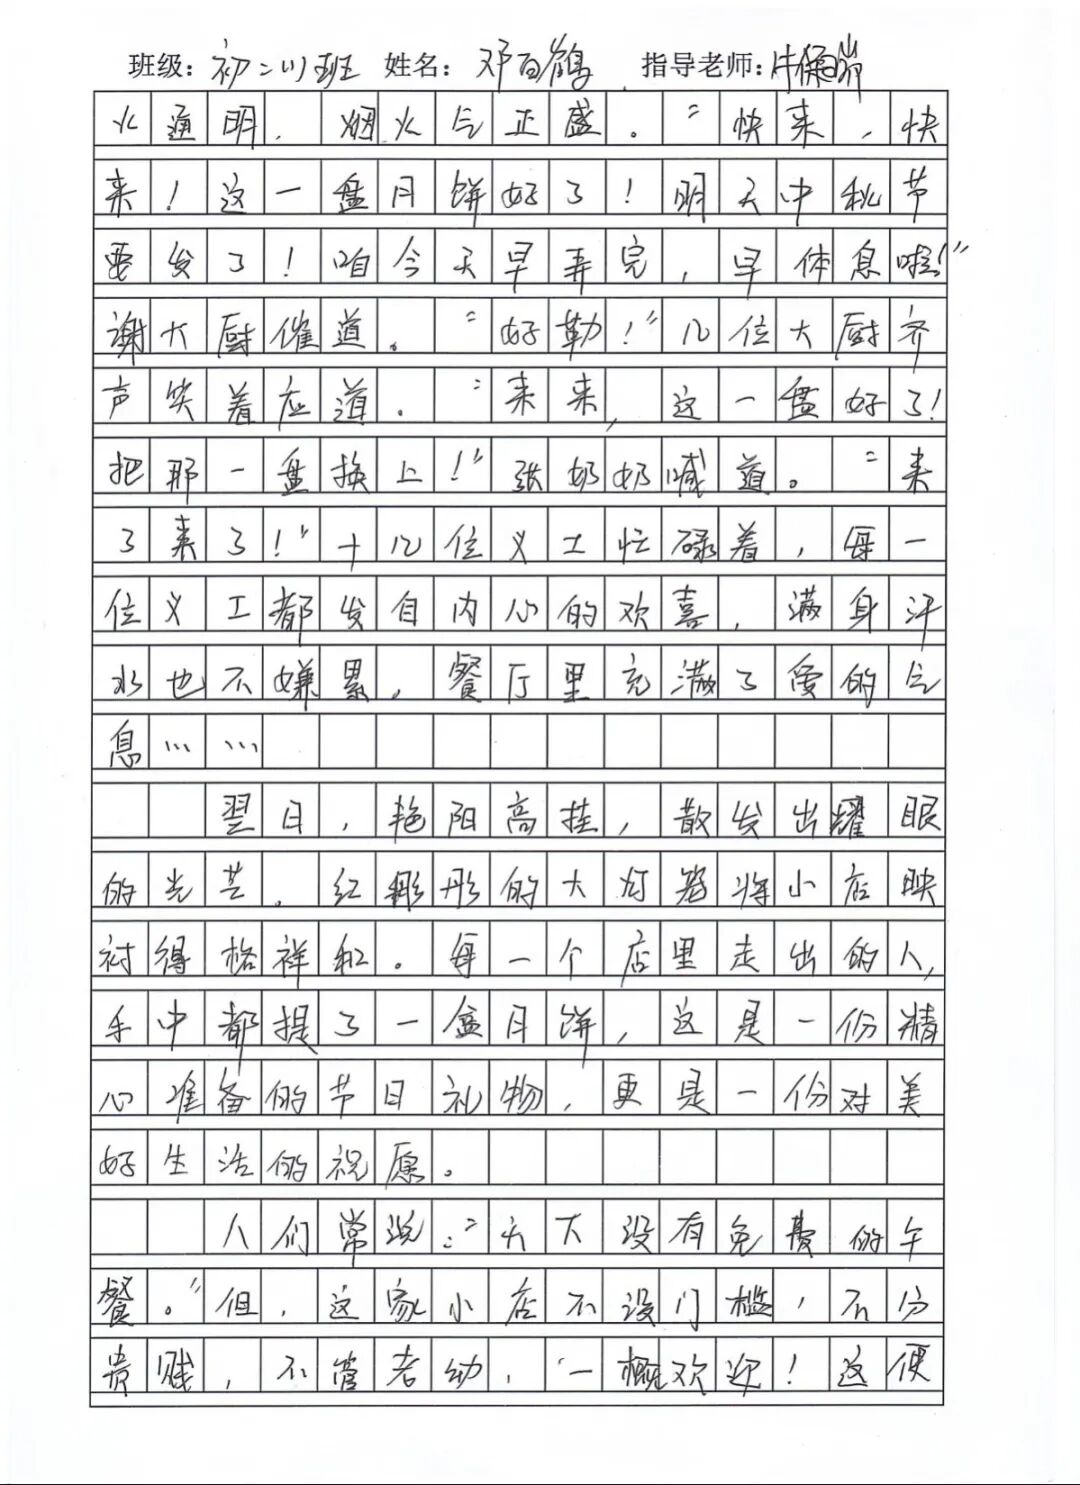 班级：初二(1)班 姓名：邓百鹤 指导老师：牛保
火通明，烟火气正盛。“快来，快
来！这一盘月饼好了！明天中秋节
要发了！咱今天早弄完，早体息啦！”
谢大厨催道。“好勒！”几位大厨齐
声笑着应道。“来来，这一盘好了！
把那一盘换上！”张奶奶喊道。“来
了来了！”十几位义工忙碌着，每一
位义工都发自内心的欢喜，满身汗
水也不嫌累，餐厅里充满了爱的气
息……
翌日，艳阳高挂，散发出耀眼
的光芒。红彤彤的大灯笼将小店映
衬得格祥和。每一个店里走出的人，
手中都提了一盒月饼，这是一份精
心准备的节日礼物，更是一份对美
好生活的祝愿。
人们常说：“天下没有免费的午
餐。”但，这家小店不设门槛，不分
贵贱，不管老幼，一概欢迎！这便